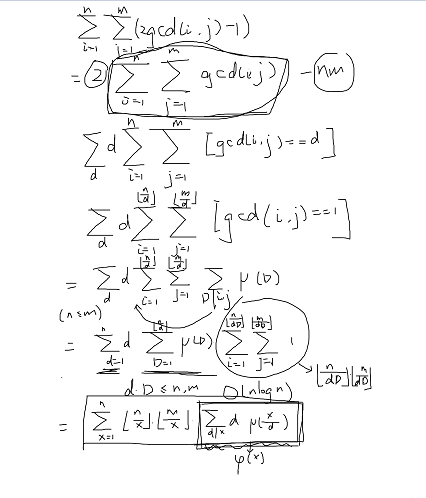 n m
∑ ∑ (2gcd(i,j)-1)
i=1 j=1
= 2 ∑_{i=1}^{n} ∑_{j=1}^{m} gcd(i,j) - nm
∑_d d ∑_{i=1}^{n} ∑_{j=1}^{m} [gcd(i,j)==d]
∑_d d ∑_{i=1}^{⌊n/d⌋} ∑_{j=1}^{⌊m/d⌋} [gcd(i,j)==1]
= ∑_d d ∑_{i=1}^{⌊n/d⌋} ∑_{j=1}^{⌊m/d⌋} ∑_{D|i,j} μ(D)
(n≤m)
= ∑_{d=1}^{n} d ∑_{D=1}^{⌊n/d⌋} μ(D) ∑_{i=1}^{⌊n/dD⌋} ∑_{j=1}^{⌊m/dD⌋} 1
→ ⌊n/dD⌋·⌊m/dD⌋
d·D ≤ n,m O(nlogn)
= ∑_{x=1}^{n} ⌊n/x⌋·⌊m/x⌋ ∑_{d|x} d μ(x/d)
φ(x)